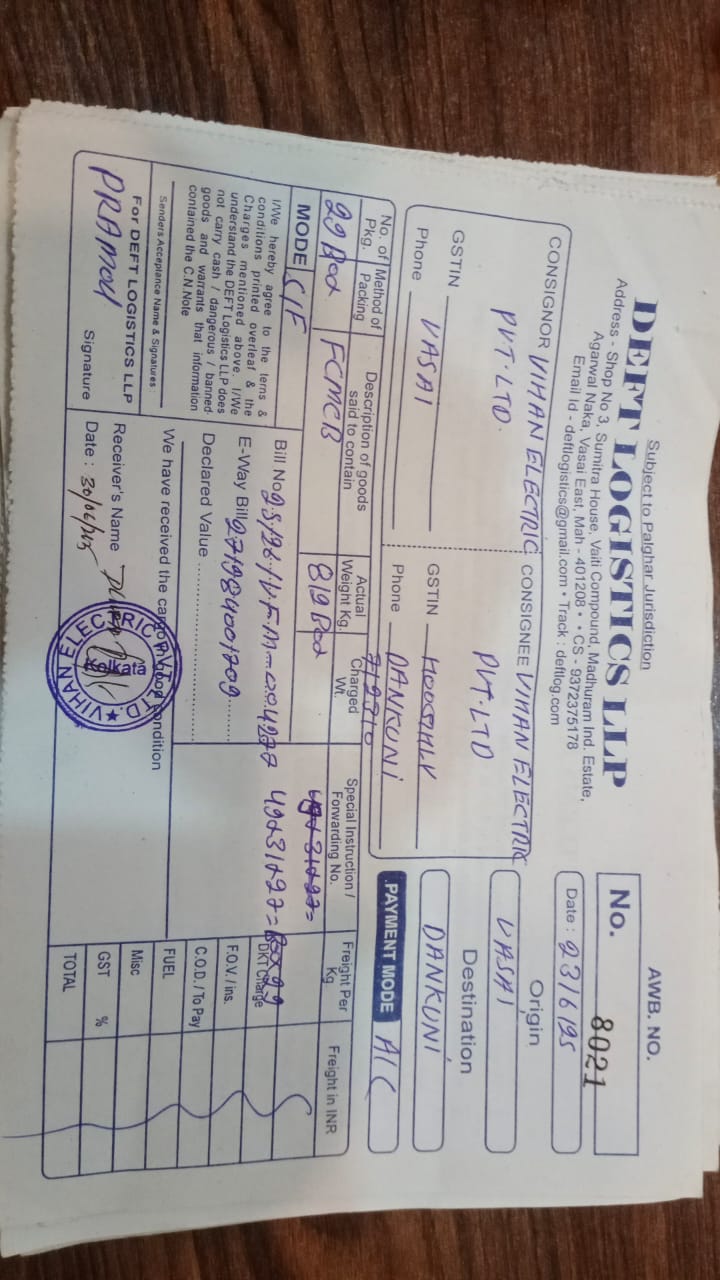 Subject to Palghar Jurisdiction
DEFT LOGISTICS LLP
Address - Shop No 3, Sumitra House, Vaiti Compound, Madhuram Ind. Estate,
Agarwal Naka, Vasai East, Mah - 401208 • • CS - 9372375178
Email Id - deftlogistics@gmail.com • Track : deftlog.com
AWB. NO.
No. 8021
Date : 23/6/25
CONSIGNOR VIHAN ELECTRIC
PVT. LTD.
GSTIN
VASAI
Phone
CONSIGNEE VIHAN ELECTRIC
PVT. LTD
GSTIN HOOGHLY
DANKUNI
Phone 712310
Origin
VASAI
Destination
DANKUNI
PAYMENT MODE A/C
No. of Pkg.
Method of Packing
Description of goods said to contain
Actual Weight Kg.
Charged Wt.
Special Instruction / Forwarding No.
Freight Per Kg
Freight in INR
FCMCB
MODE S/F
I/We hereby agree to the terns &
conditions printed overleaf & the
Charges mentioned above. I/We
understand the DEFT Logistics LLP does
not carry cash / dangerous / banned-
goods and warrants that information
contained the C.N Note
Senders Acceptance Name & Signatures
For DEFT LOGISTICS LLP
Signature
Bill No
E-Way Bill 271984001709
Declared Value
We have received the cargo in good condition
Receiver's Name
Date : 30/06/25
VIHAN ELECTRIC PVT. LTD.
Kolkata
DKT Charge
F.O.V. / ins.
C.O.D. / To Pay
FUEL
Misc
GST %
TOTAL